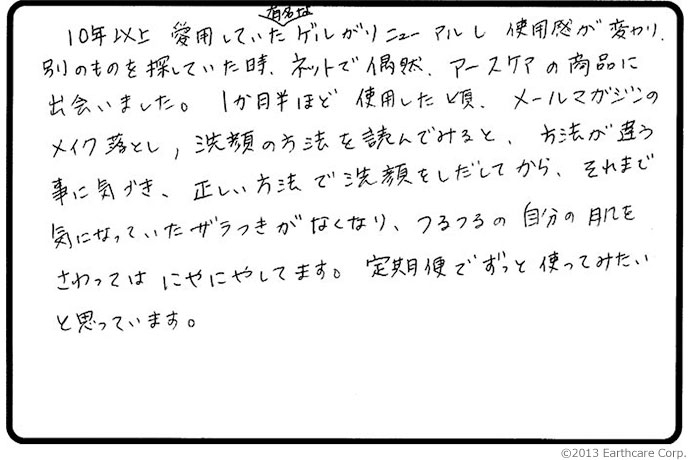 10年以上 愛用していた有名なゲルがリニューアルし 使用感が変わり、
別のものを探していた時、ネットで偶然、アースケアの商品に
出会いました。 1か月半ほど 使用した頃、メールマガジンの
メイク落とし,洗顔の方法を読んでみると、方法が違う
事に気づき、正しい方法で洗顔をしだしてから、それまで
気になっていたザラつきがなくなり、つるつるの自分の肌を
さわっては にやにやしてます。定期便でずっと使ってみたい
と思っています。
©2013 Earthcare Corp.